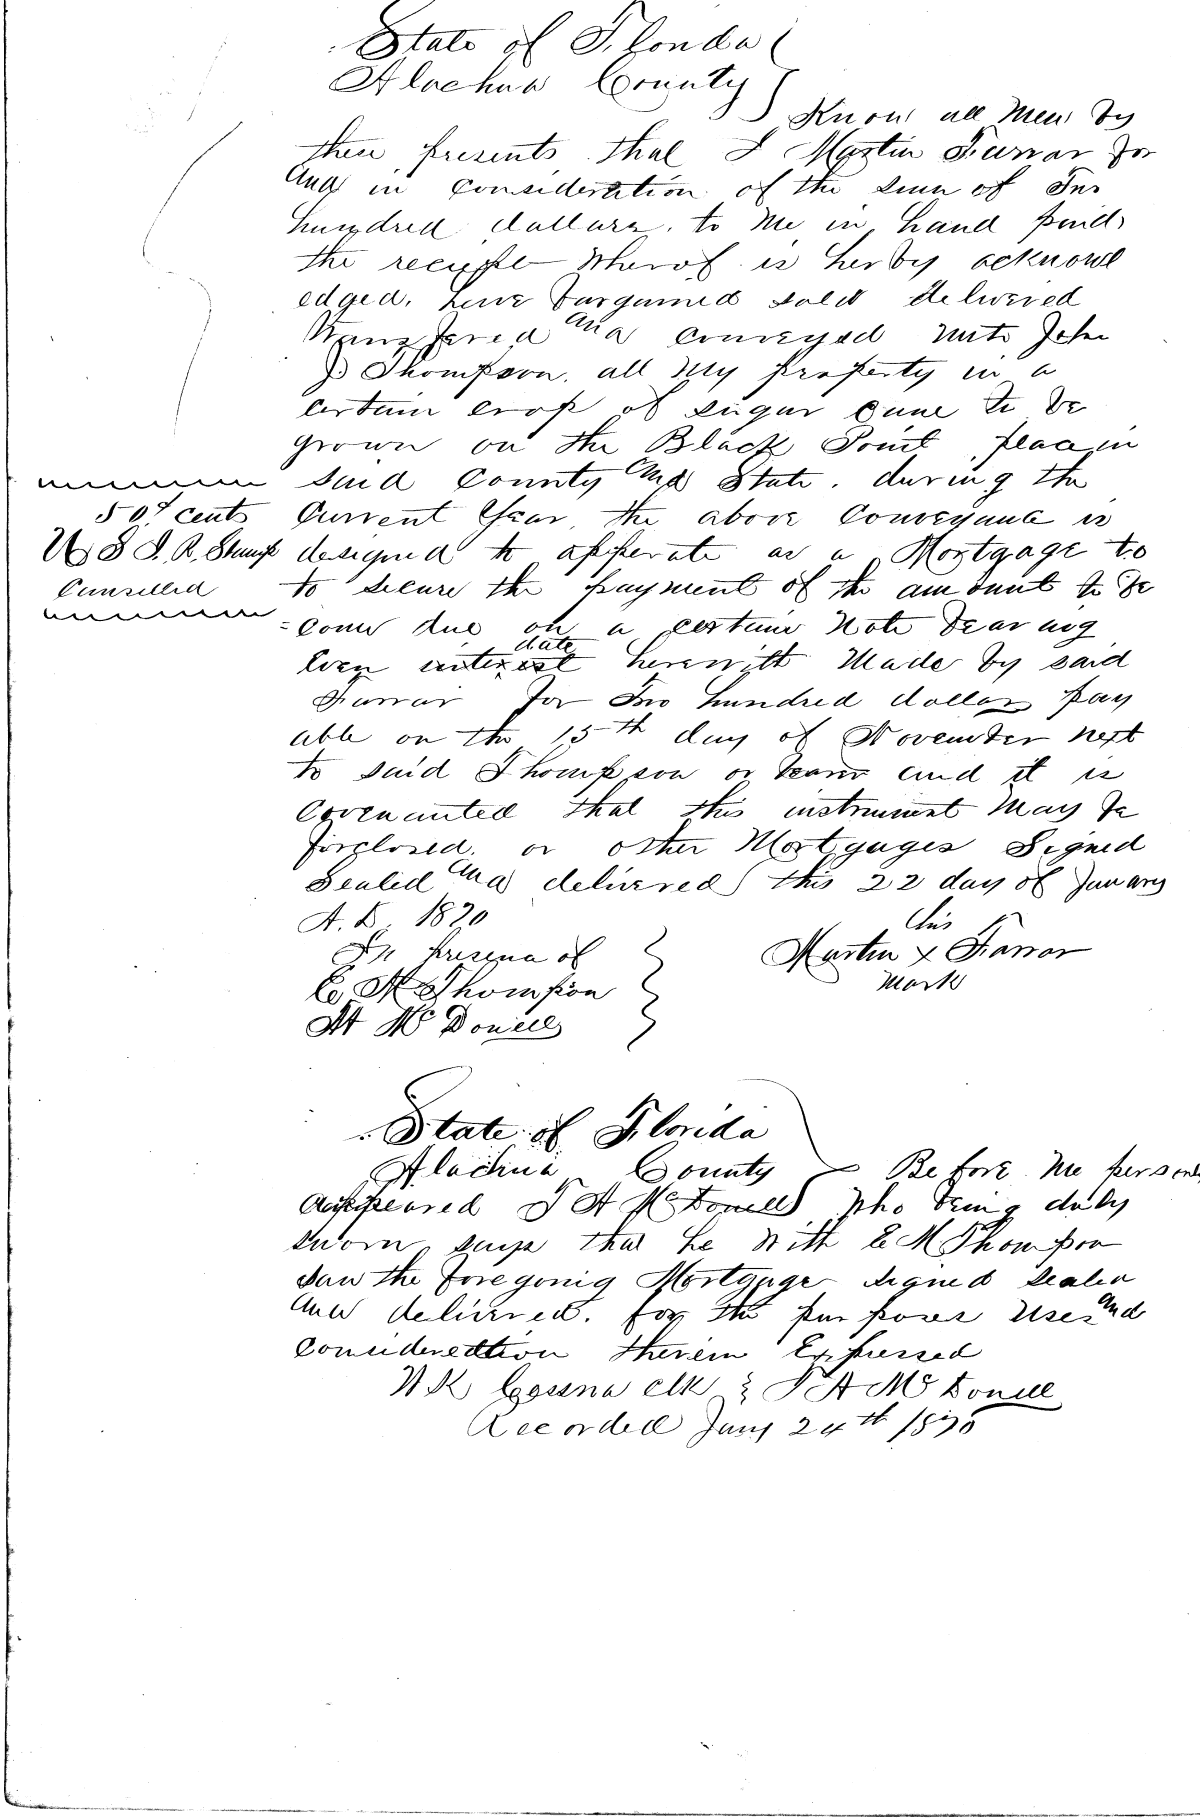 State of Florida
Alachua County
Know all Men by
these presents that I Martin Farrar for
and in consideration of the sum of Two
hundred dollars, to me in hand paid
the recipt wherof is herby acknowl
edged, have bargained sold delivered
transfered and conveyed unto John
Thompson, all My property in a
certain crop of sugar cane to be
grown on the Black Point place in
said County and State. during the
50 cents
current Year, the above Conveyance is
U S I. R. Stamp
designed to opperate as a Mortgage to
Cancelled
to secure the payment of the amount to be
come due on a certain Note bearing
date
even interest herewith Made by said
Farrar for Two hundred dollars pay
able on the 15th day of November next
to said Thompson or bearer and it is
Covenanted that this instrument May be
forclosed. or other Mortgages Signed
Sealed and delivered this 22 day of January
A. D. 1870
his
In presena of
Martin x Farrar
mark
E M Thompson
A Mc Donell
State of Florida
Alachua County Before Me person
appeared T A McDonell who being duly
sworn, says that he with E M Thompson
saw the foregoing Mortgage signed sealed
and delivered. for the purposes uses and
consideration therein Expressed
W K Cessna clk T A Mc Donell
Recorded Jany 24th 1870